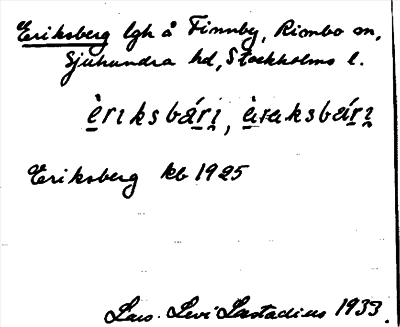 Eriksberg lgh å Finnby, Rimbo sn,
Sjuhundra hd, Stockholms l.
èrıksbárı̣, èrıksbárı̣
Eriksberg kb 1925
Lars Levi Læstadius 1933.